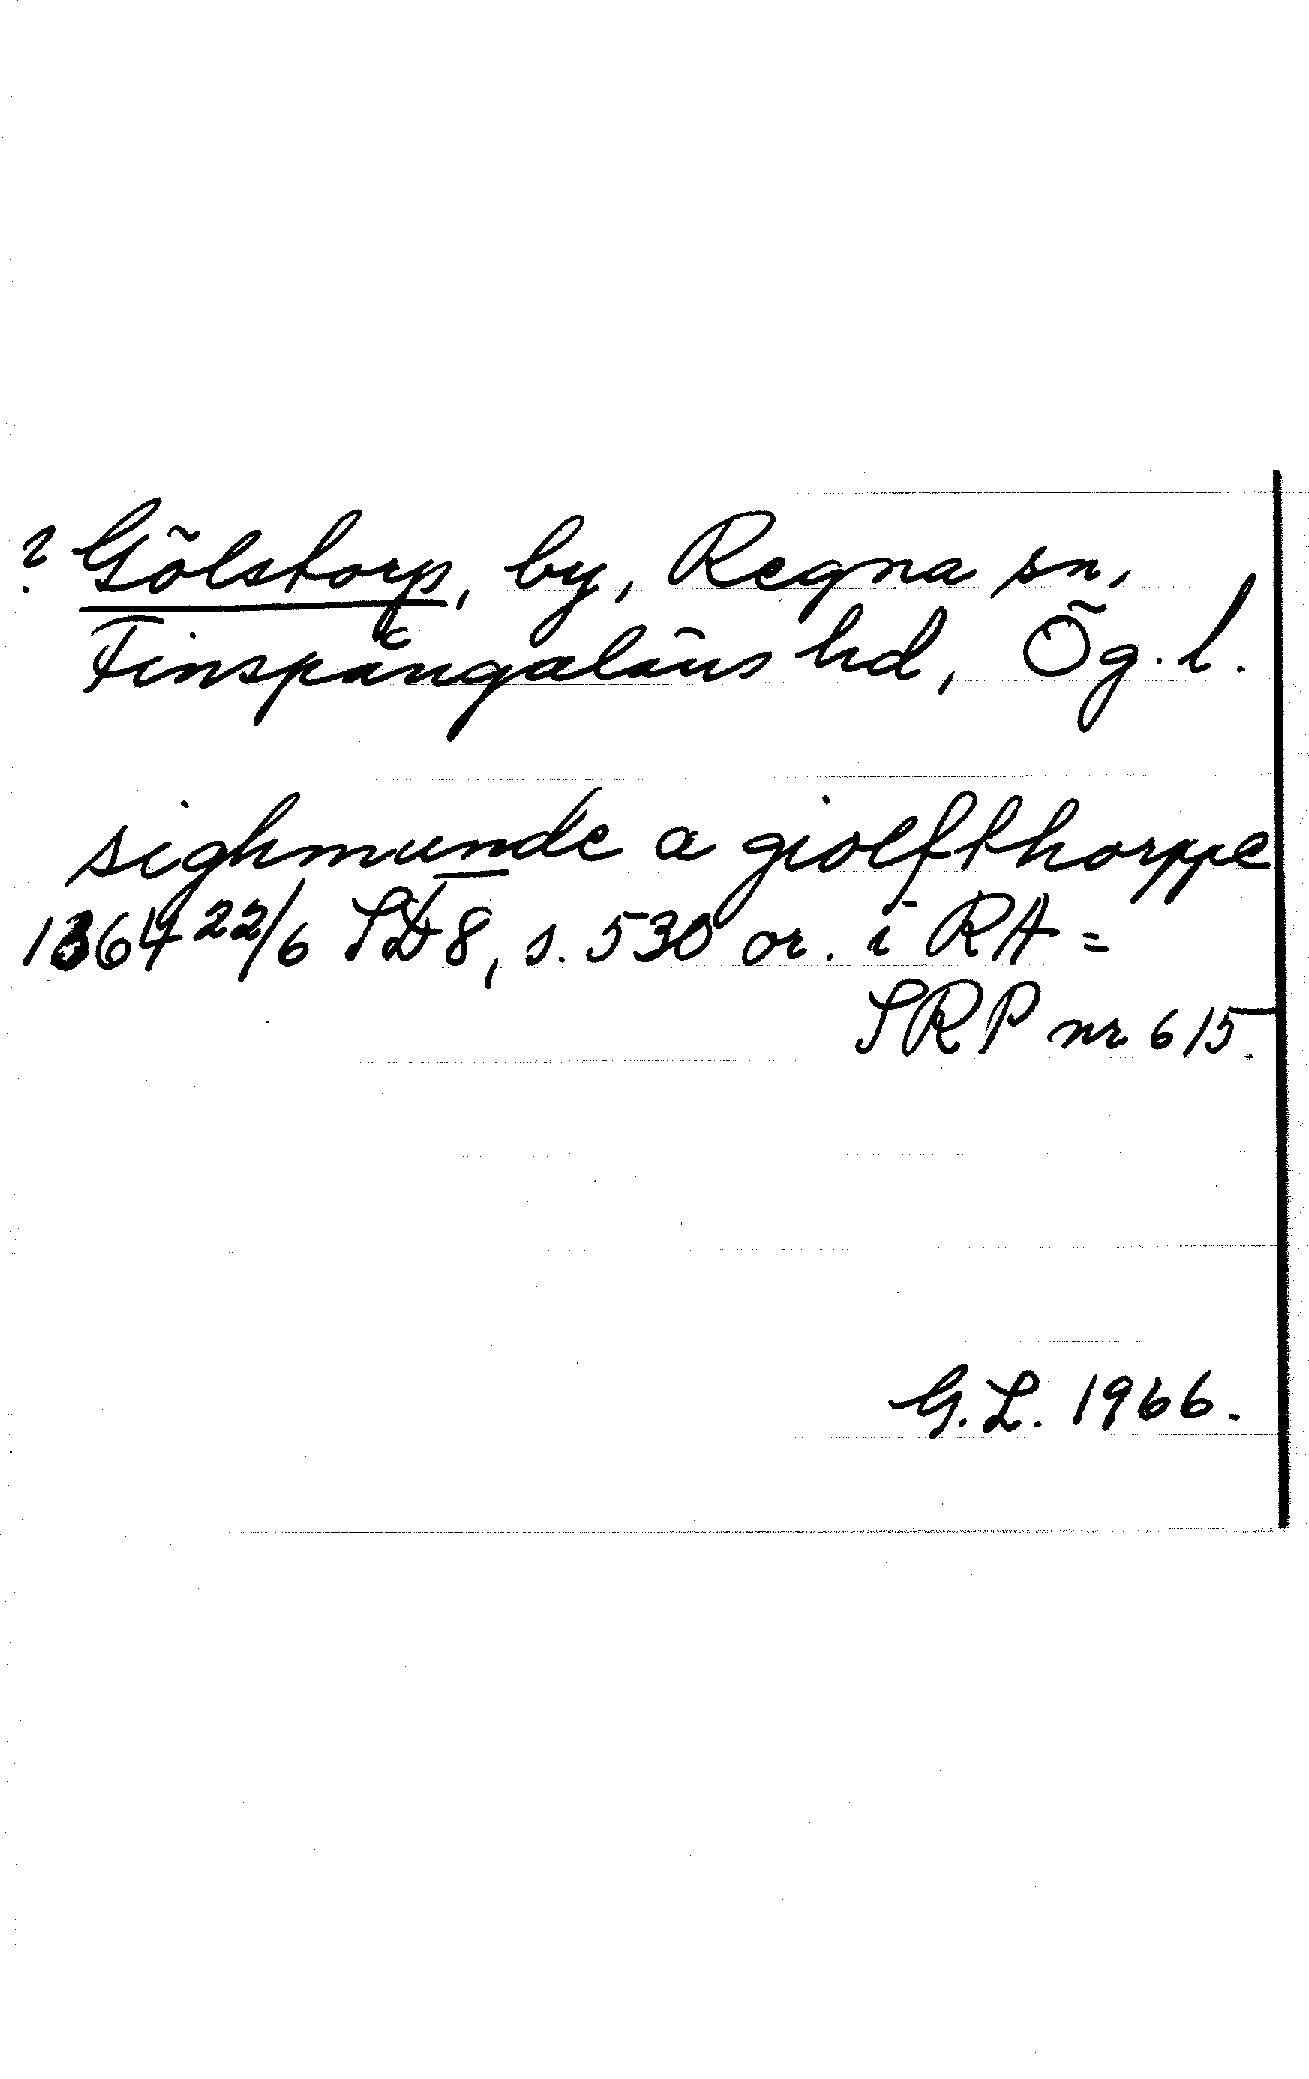 ? Gölstorp, by, Regna sn,
Finspångaläns hd, Ög. l.
sighmunde a giolfthorppe
1364 22/6 SD 8, s. 530 or. i RA =
SRP nr 615.
G. L. 1966.